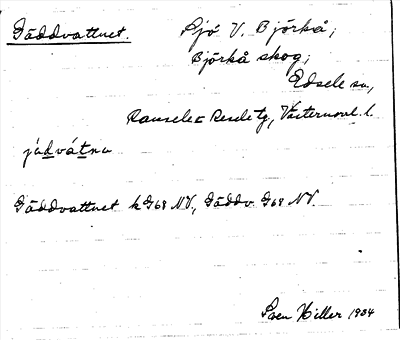 Gäddvattnet. Sjö V. Björkå,
Björkå skog,
Edsele sn,
Ramsele o Resele tg, Västernorrl. l.
jädvátna
Gäddvattnet k G68 NV, Gäddv. G68 NV.
Sven Hiller 1934